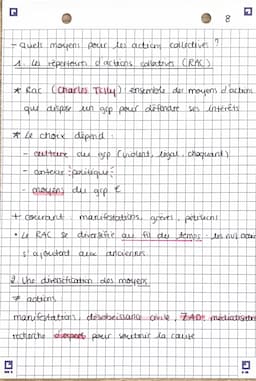 8
- Quels moyens pour les actions collectives ?
1. les répertoires d'actions collectives (RAC)
* Rac (Charles Tilly) : ensemble des moyens d'action
que dispose un grp pour défendre ses intérêts
* Le choix dépend :
- culture du grp (violent, légal, choquant)
- contexte politique
- moyens du grp €
+ courant : manifestations, grèves, pétitions
• Le RAC se diversifie au fil du temps : les nvx
s'ajoutent aux anciennes
2. Une diversification des moyens
≠ actions
manifestation, désobéissance civile, ZAD, médiatisation
recherche d'expert pour soutenir la cause